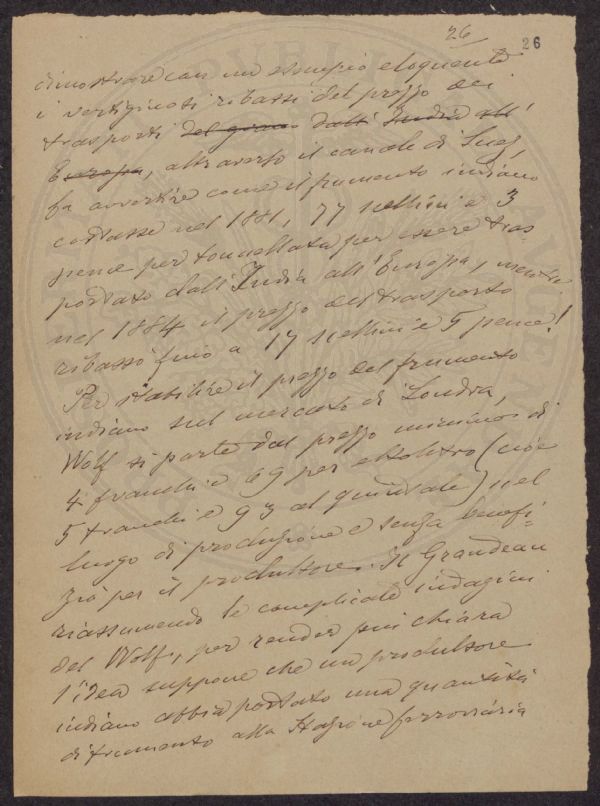 26
26
dimostrare con un esempio eloquente
i vertiginosi ribassi del prezzo dei
trasporti del grano dall'India all'
Europa, attraverso il canale di Suez,
fa avvertire come il frumento indiano
costasse nel 1881, 77 scellini e 3
pence per tonnellata per essere tras
portato dall'India all'Europa, mentre
nel 1884 il prezzo del trasporto
ribassò fino a 17 scellini e 5 pence!
Per stabilire il prezzo del frumento
indiano sul mercato di Londra,
Wolf si parte dal prezzo minimo di
4 franchi e 69 per ettolitro (cioè
5 franchi e 93 al quintale) nel
luogo di produzione e senza benefi-
zio per il produttore. Il Grandeau
riassumendo le complicate indagini
del Wolf, per render più chiara
l'idea suppone che un produttore
indiano abbia portato una quantità
di frumento alla stazione ferroviaria